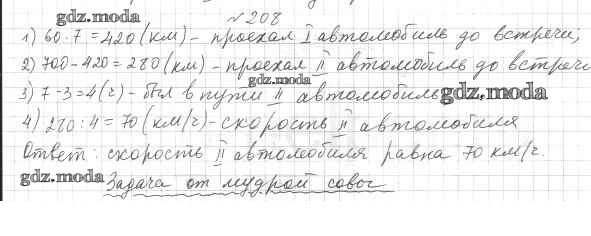 gdz.moda
№208
1) 60·7=420(км)- проехал I автомобиль до встречи;
2) 700-420=280(км)-проехал II автомобиль до встречи
gdz.moda
3) 7-3=4(ч)-был в пути II автомобиль gdz.moda
4) 280:4=70(км/ч)-скорость II автомобиля
Ответ: скорость II автомобиля равна 70 км/ч.
gdz.moda Задача от мудрой совы